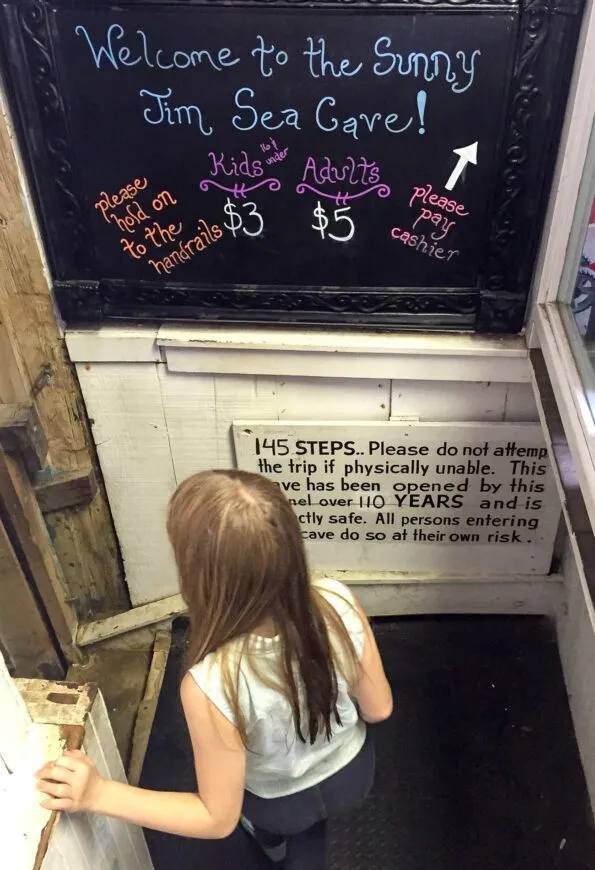 Welcome to the Sunny
Jim Sea Cave!
Kids 16 & under
Adults
$3
$5
please
hold on
to the
handrails
please
pay
cashier
145 STEPS.. Please do not attemp
the trip if physically unable. This
ave has been opened by this
nel over 110 YEARS and is
ctly safe. All persons entering
cave do so at their own risk.